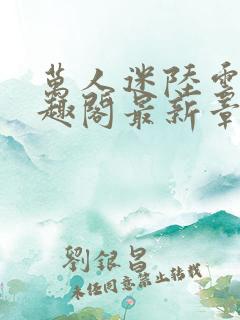 萬人迷陸雲
趣閣最新章
劉銀昌
未经同意禁止转载